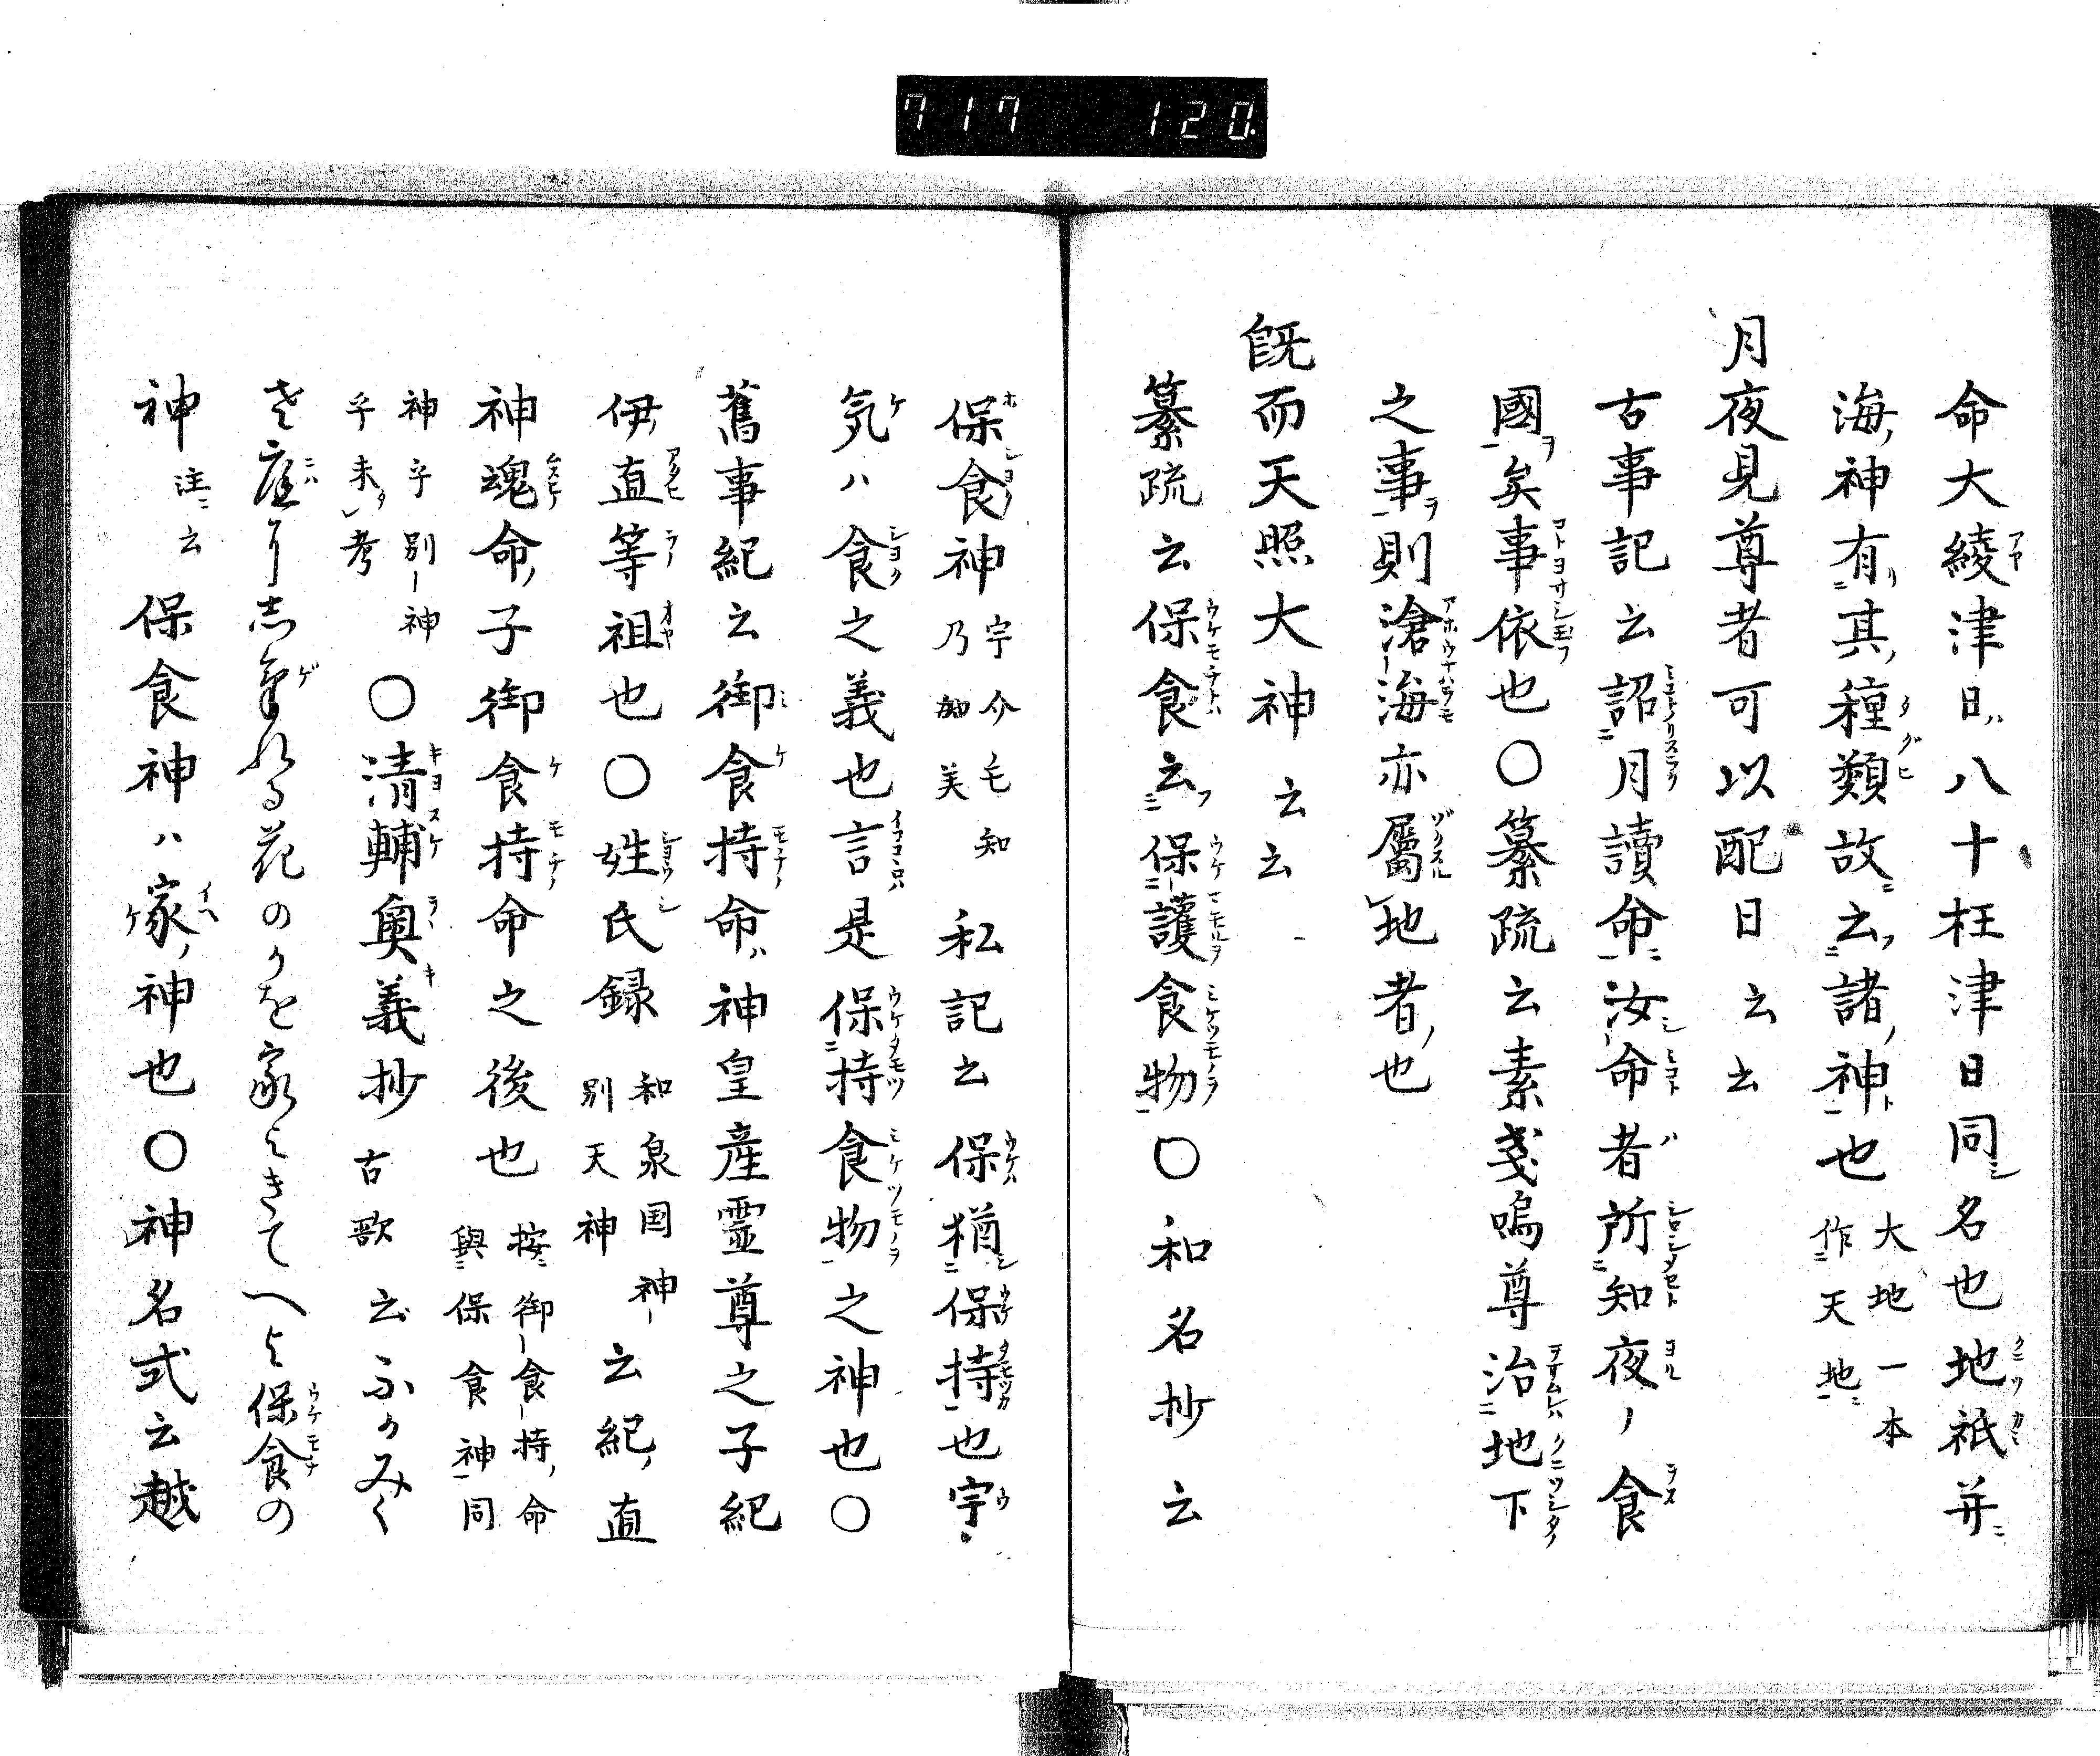 717 120.
命大綾津日八十枉津日同名也地祇并
海神有其種類故云諸神也 大地一本作天地
月夜見尊者可以配日云云
古事記云詔月讀命汝命者所知夜ノ食
國矣事依也〇纂疏云素戔嗚尊治地下
之事則滄海亦屬地者也
既而天照大神云云
纂疏云保食云保護食物〇和名抄云
保食神 宇介毛知乃加美 私記云保猶保持也宇
気ハ食之義也言是保持食物之神也〇
舊事紀云御食持命神皇産霊尊之子紀
伊直等祖也〇姓氏録 和泉国神別天神 云紀直
神魂命子御食持命之後也 按御食持命與保食神同
神乎別神乎未考 〇清輔奥義抄 古歌 云ふかみく
さ庭にしける花のかを家ときてへよ保食の
神 注云 保食神ハ家神也〇神名式云越